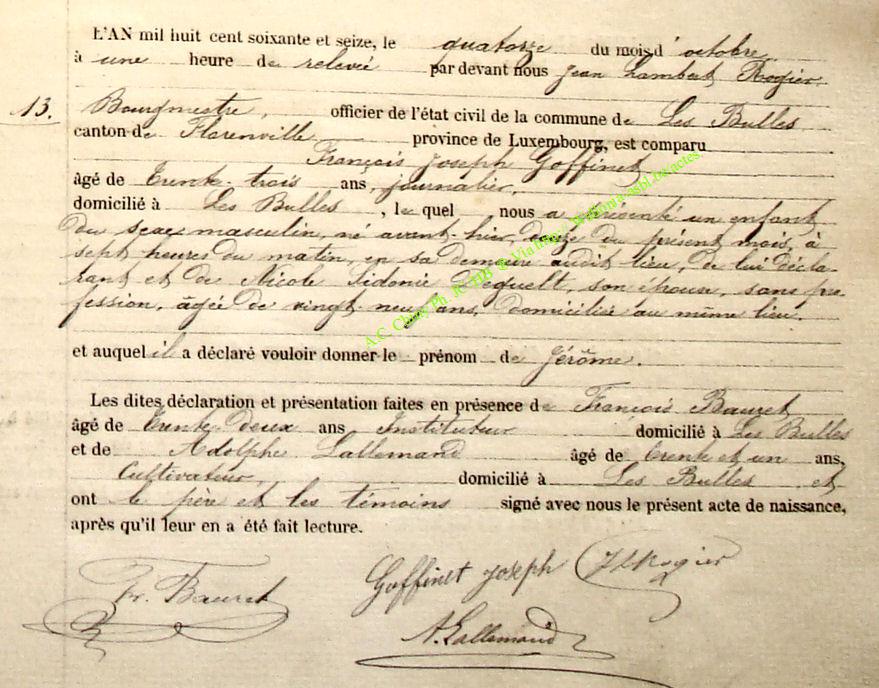 L'AN mil huit cent soixante et seize, le quatorze du mois d'octobre
à une heure de relevée par devant nous Jean Lambert Rogier
13. Bourgmestre, officier de l'état civil de la commune de Les Bulles
canton de Florenville province de Luxembourg, est comparu
François Joseph Goffinet
âgé de trente-trois ans, journalier,
domicilié à Les Bulles, lequel nous a présenté un enfant
du sexe masculin, né avant-hier, douze du présent mois, à
sept heures du matin, en sa demeure audit lieu, de lui décla-
rant et de Nicole Sidonie, son épouse, sans pro-
fession, âgée de vingt-neuf ans, domiciliée au même lieu.
et auquel il a déclaré vouloir donner le prénom de Jérôme.
Les dites déclaration et présentation faites en présence de François Bauret
âgé de trente-deux ans Instituteur domicilié à Les Bulles
et de Adolphe Lallemand âgé de trente et un ans,
Cultivateur, domicilié à Les Bulles et
ont le père et les témoins signé avec nous le présent acte de naissance,
après qu'il leur en a été fait lecture.
Fr. Bauret Goffinet Joseph JLRogier
A. Lallemand